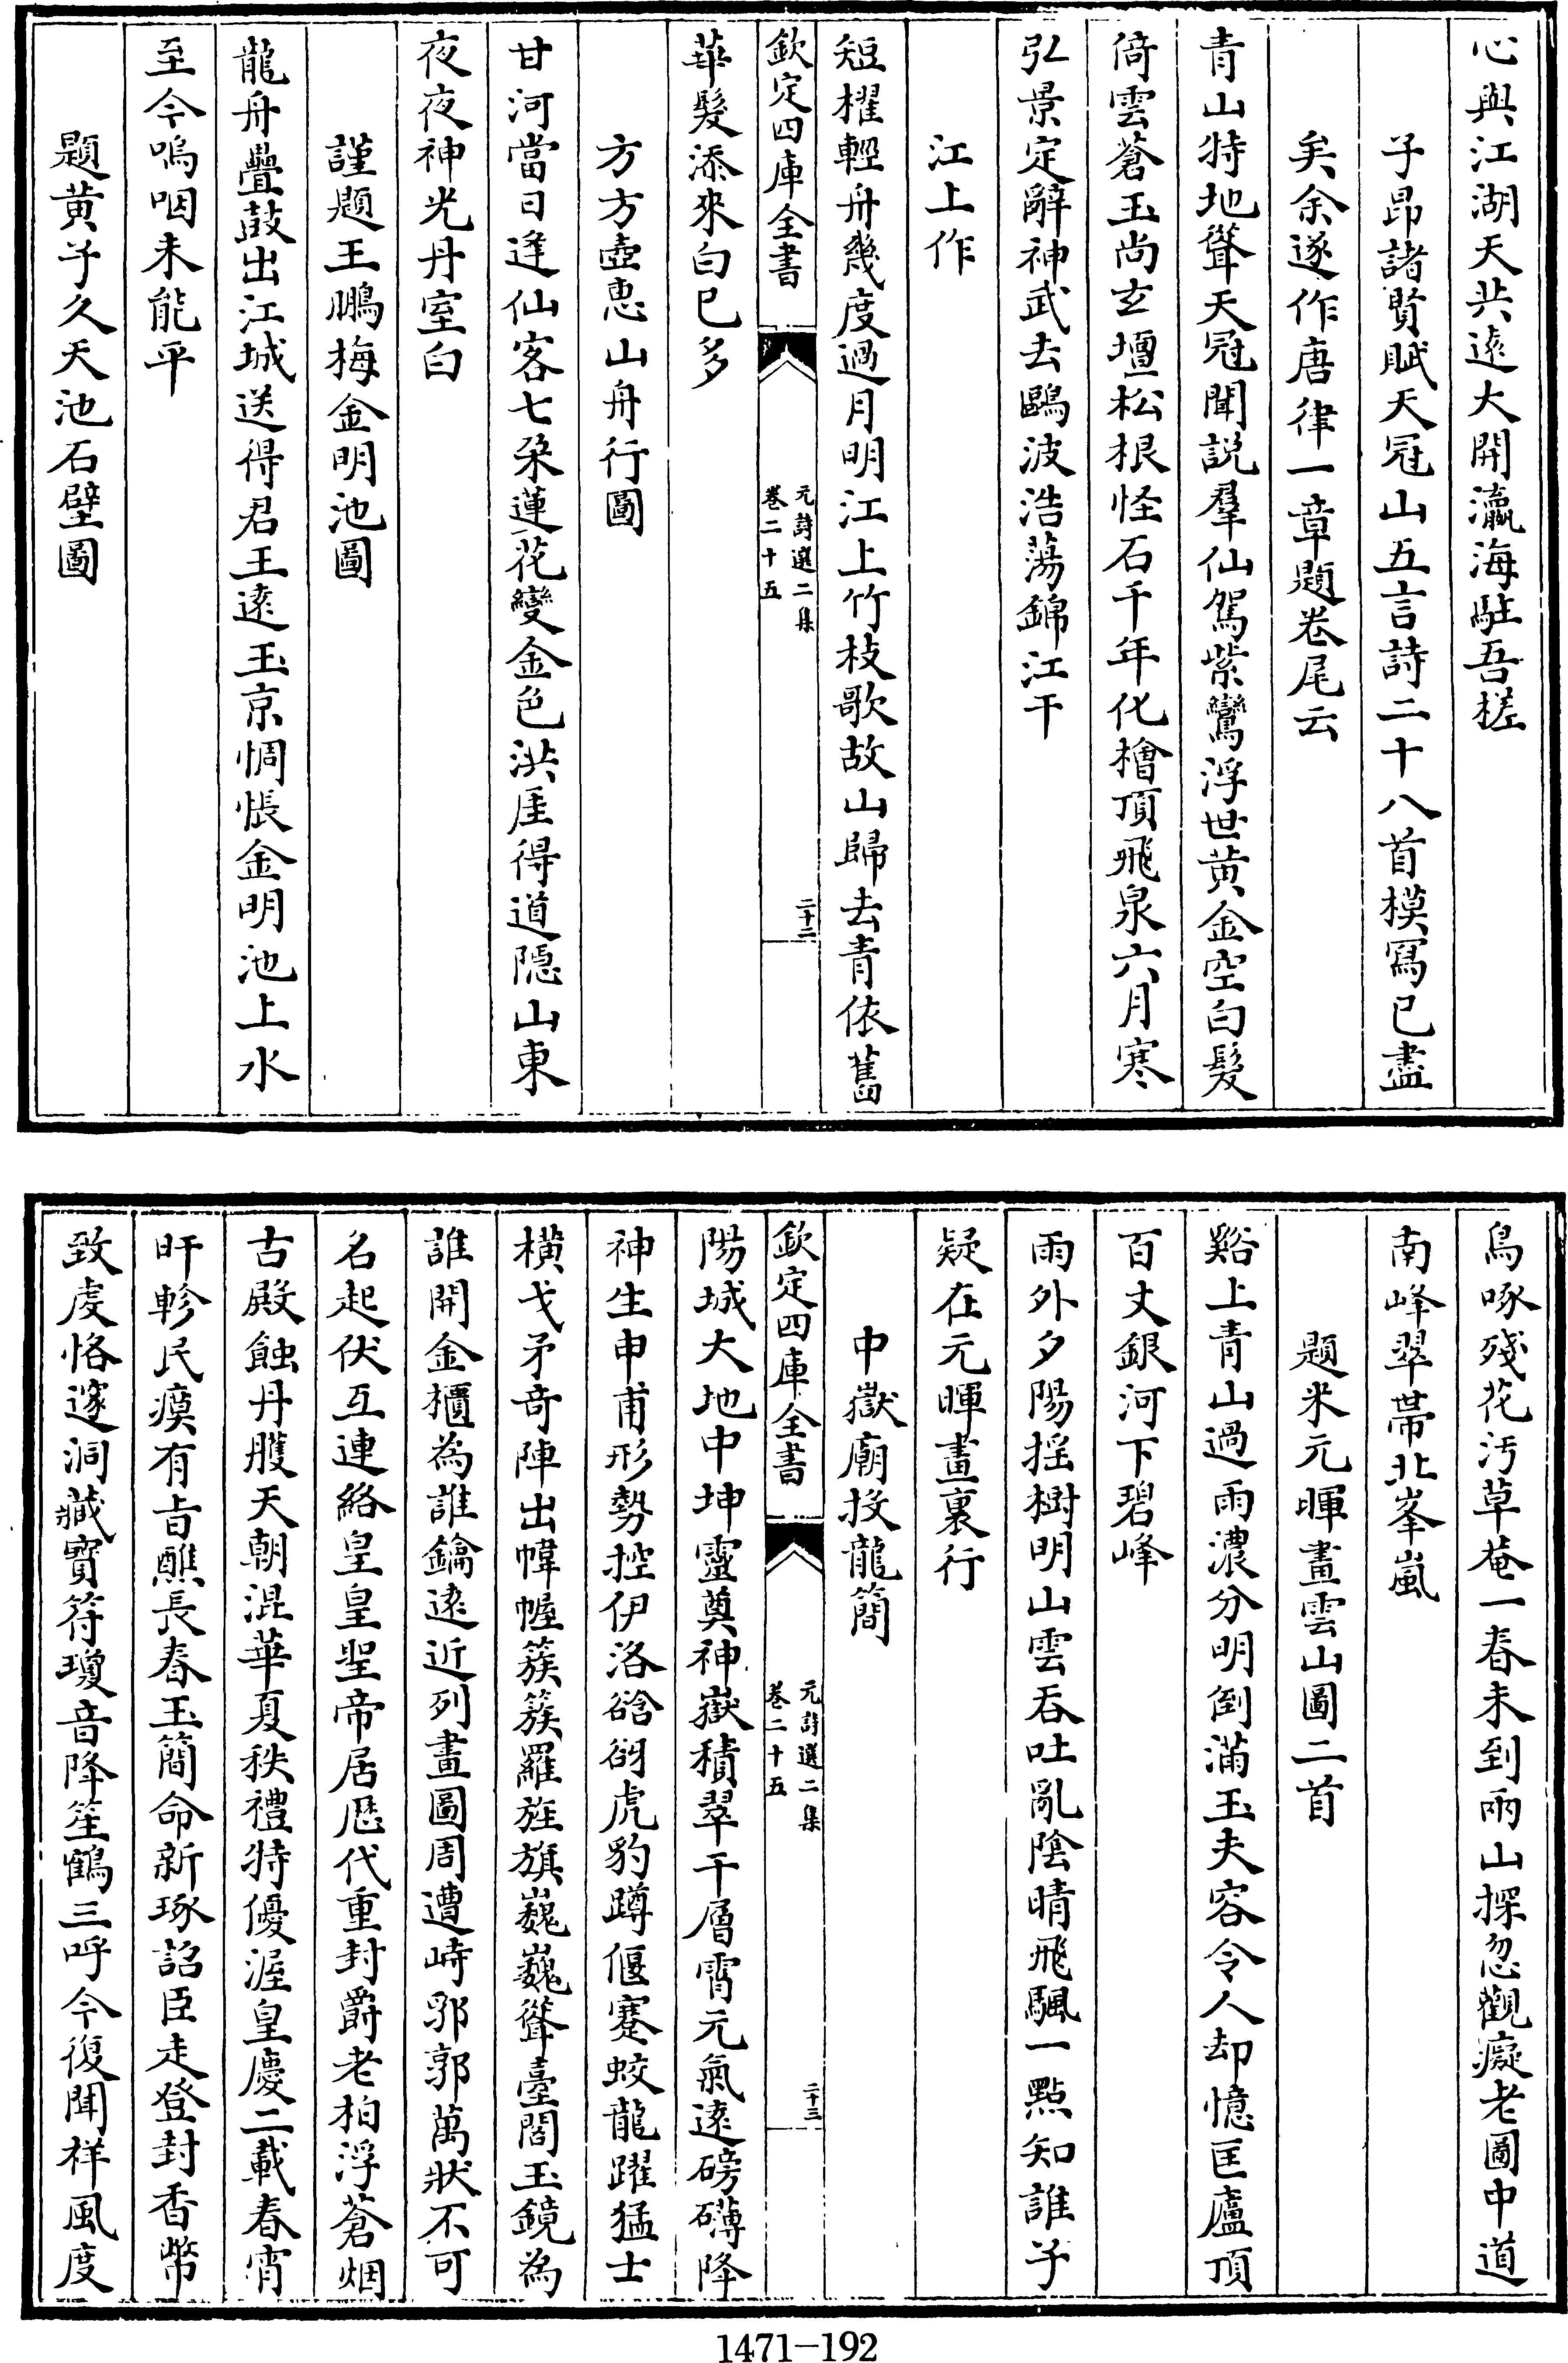 心與江湖天共遠大開瀛海駐吾槎
子昂諸賢賦天冠山五言詩二十八首模寫已盡
矣余遂作唐律一章題卷尾云
青山特地聳天冠聞説羣仙駕紫鸞浮世黄金空白髮
倚雲蒼玉尚玄壇松根怪石千年化檜頂飛泉六月寒
弘景定辭神武去鷗波浩蕩錦江干
江上作
短櫂輕舟幾度過月明江上竹枝歌故山歸去青依舊
欽定四庫全書
元詩選二集
卷二十五
二十二
華髮添來白已多
方方壺惠山舟行圖
甘河當日逢仙客七朶蓮花變金色洪厓得道隠山東
夜夜神光丹室白
謹題王鵬梅金明池圖
龍舟疊鼓出江城送得君王遠玉京惆悵金明池上水
至今嗚咽未能平
題黄子久天池石壁圖
鳥啄殘花汚草菴一春未到兩山探忽觀癡老圖中道
南峰翠帶北峯嵐
題米元暉畫雲山圖二首
谿上青山過雨濃分明倒滿玉夫容令人却憶匡廬頂
百丈銀河下碧峰
雨外夕陽揺樹明山雲吞吐亂陰晴飛颿一點知誰子
疑在元暉畫裏行
中嶽廟投龍簡
欽定四庫全書
元詩選二集
卷二十五
二十三
陽城大地中坤靈奠神嶽積翠干層霄元氣遠磅礴降
神生申甫形勢控伊洛谽谺虎豹蹲偃蹇蛟龍躍猛士
横戈矛奇陣出幃幄簇簇羅旌旗巍巍聳臺閣玉鏡為
誰開金櫃為誰鑰遠近列畫圖周遭峙郛郭萬狀不可
名起伏互連絡皇皇聖帝居歴代重封爵老柏浮蒼烟
古殿蝕丹雘天朝混華夏秩禮特優渥皇慶二載春宵
旰軫民瘼有旨醮長春玉簡命新琢詔臣走登封香幣
致虔恪邃洞藏寳符瓊音降笙鶴三呼今復聞祥風度
1471-192